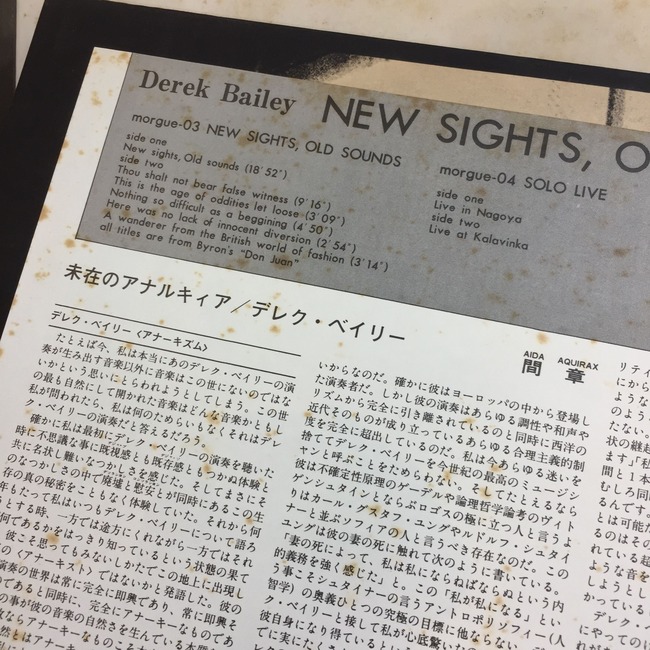 Derek Bailey NEW SIGHTS, O
morgue-03 NEW SIGHTS, OLD SOUNDS
side one
New sights, Old sounds (18'52")
side two
Thou shalt not bear false witness (9'16")
This is the age of oddities let loose (3'09")
Nothing so difficult as a beggining (4'50")
Here was no lack of innocent diversion (2'54")
A wanderer from the British world of fashion (3'14")
all titles are from Byron's "Don Juan"
morgue-04 SOLO LIVE
side one
Live in Nagoya
side two
Live at Kalavinka
未在のアナルキィア／デレク・ベイリー
AIDA AQUIRAX
間 章
デレク・ベイリー〈アナーキズム〉
たとえば今、私は本当にあのデレク・ベイリーの演
奏が生み出す音楽以外に音楽はこの世にないのではな
いかという思いにとらわれようとしてしまう。この世
の最も自然にして開かれた音楽はどんな音楽かともし
私が問われたら、私は何のためらいもなくそれはデレ
ク・ベイリーの演奏だと答えるだろう。
確かに私は最初にデレク・ベイリーの演奏を聴いた
時に不思議な事に既視感とも既存感ともつかぬ体験と
共に名状し難いなつかしさを感じた。そしてまさにそ
のなつかしさの中で廃墟と慰安とが同時にあるこの生
存の真の秘密をこともなく体験していた。それから何
年もたって私はいつもデレク・ベイリーについて語ろ
うとする時、一方では途方にくれながら一方ではそれ
何であるかをはっきり知っているという状態の果て
彼こそ思ってもみないしかたでこの地上に出現し
の〈アナーキスト〉ではないかと発語した。彼の
演奏の世界は常に完全に即興であり、常に即興そ
のであると同時に、完全にアナーキーなものであ
の事が彼の音楽の自然さを生んでいる本質
いからなのだ。確かに彼はヨーロッパの中から登場し
た演奏者だ。しかし彼の演奏はあらゆる調性や和声や
リズムから完全に引き離されているのと同時に西洋の
近代そのものが成り立っているあらゆる合理主義的制
度を完全に超出しているのだ。私は今あらゆる迷いを
捨ててデレク・ベイリーを今世紀の最高のミュージシ
ャンと呼ぶことをためらわない。そしてたとえるなら
彼は不確定性原理のゲーデルや論理哲学論考のヴィト
ゲンシュタインとならぶロゴスの極に立つ人と言うよ
りはカール・グスタフ・ユングやルドルフ・シュタイ
ナーと並ぶソフィアの人と言うべき存在なのだ。この
ユングは彼の妻の死に触れて次のように書いている。
「妻の死によって、私は私にならねばならぬという内
的義務を強く感じた」と。この「私が私になる」とい
う事こそシュタイナーの言うアントロポソフィー(人
智学)の奥義ひとつの究極の目標に他ならない。デレ
ク・ベイリーと接して私が心底驚い
彼自身になり得ているという